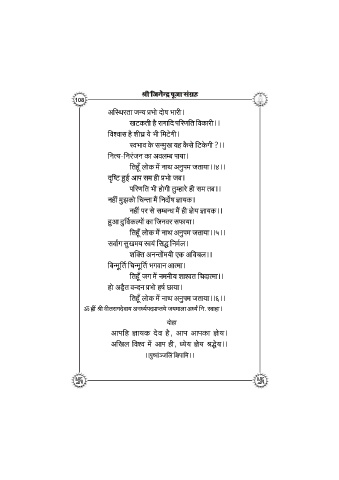 श्री जिनेन्द्र पूजा संग्रह
108
अस्थिरता जन्य प्रभो दोष भारी।
खटकती है रागादि परिणति विकारी।।
विश्वास है शीघ्र ये भी मिटेगी।
स्वभाव के सन्मुख यह कैसे टिकेगी ?।।
नित्य-निरंजन का अवलम्ब पाया।
तिहूँ लोक में नाथ अनुपम जताया।।४।।
दृष्टि हुई आप सम ही प्रभो जब।
परिणति भी होगी तुम्हारे ही सम तब।।
नहीं मुझको चिन्ता मैं निर्दोष ज्ञायक।
नहीं पर से सम्बन्ध मैं ही ज्ञेय ज्ञायक।।
हुआ दुर्विकल्पों का जिनवर सफाया।
तिहूँ लोक में नाथ अनुपम जताया।।५।।
सर्वांग सुखमय स्वयं सिद्ध निर्मल।
शक्ति अनन्तोंमयी एक अविचल।।
बिन्मूर्ति चिन्मूर्ति भगवान आत्मा।
तिहूँ जग में नमनीय शाश्वत चिदात्मा।।
हो अद्वैत वन्दन प्रभो हर्ष छाया।
तिहूँ लोक में नाथ अनुपम जताया।।६।।
ॐ ह्रीं श्री वीतरागदेवाय अनर्घ्यपदप्राप्तये जयमाला अर्घ्यं नि. स्वाहा।
दोहा
आपहि ज्ञायक देव है, आप आपका ज्ञेय।
अखिल विश्व में आप ही, ध्येय ज्ञेय श्रद्धेय।।
।।पुष्पांञ्जलि क्षिपामि।।